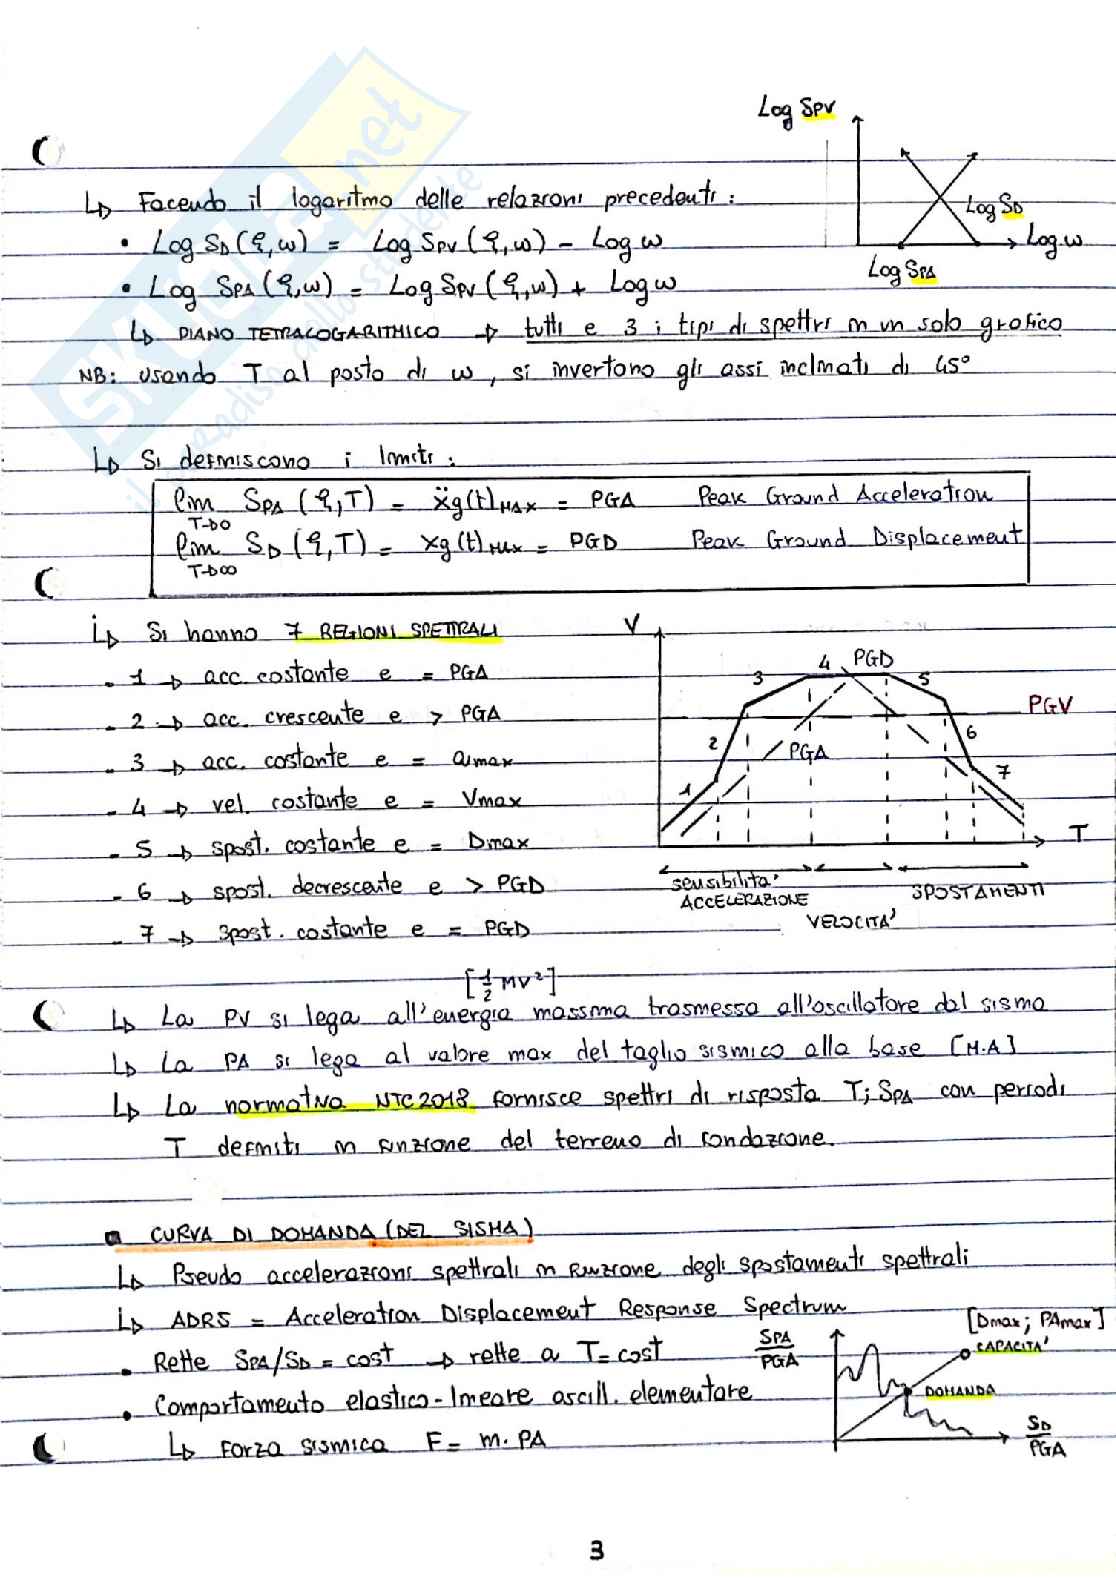 Log SPV
Log SD
Log ω
Log SPA
↳ Facendo il logaritmo delle relazioni precedenti:
• Log SD (ξ,ω) = Log SPV (ξ,ω) - Log ω
• Log SPA (ξ,ω) = Log SPV (ξ,ω) + Log ω
↳ PIANO TETRALOGARITMICO → tutti e 3 i tipi di spettri in un solo grafico
NB: usando T al posto di ω, si invertono gli assi inclinati di 45°
↳ Si definiscono i limiti:
lim T→0 SPA (ξ,T) = ẍg(t)MAX = PGA Peak Ground Acceleration
lim T→∞ SD (ξ,T) = xg(t)MAX = PGD Peak Ground Displacement
↳ Si hanno 7 REGIONI SPETTRALI
- 1 → acc. costante e = PGA
- 2 → acc. crescente e > PGA
- 3 → acc. costante e = amax
- 4 → vel. costante e = Vmax
- 5 → spost. costante e = Dmax
- 6 → spost. decrescente e > PGD
- 7 → spost. costante e = PGD
V
1
2
3
4
5
6
7
PGD
PGV
PGA
T
sensibilità
ACCELERAZIONE
VELOCITA'
SPOSTAMENTI
[1/2 MV²]
↳ La PV si lega all'energia massima trasmessa all'oscillatore dal sisma
↳ La PA si lega al valore max del taglio sismico alla base [M·A]
↳ La normativa NTC2018 fornisce spettri di risposta T; SPA con periodi
T definiti in funzione del terreno di fondazione.
▪ CURVA DI DOMANDA (DEL SISMA)
↳ Pseudo accelerazioni spettrali in funzione degli spostamenti spettrali
↳ ADRS = Acceleration Displacement Response Spectrum
• Rette SPA/SD = cost → rette a T = cost
• Comportamento elastico-lineare oscill. elementare
↳ Forza sismica F = m·PA
SPA/PGA
[Dmax; PAmax]
CAPACITA'
DOMANDA
SD/PGA
3
SKUOLA.net
il paradiso dello studente